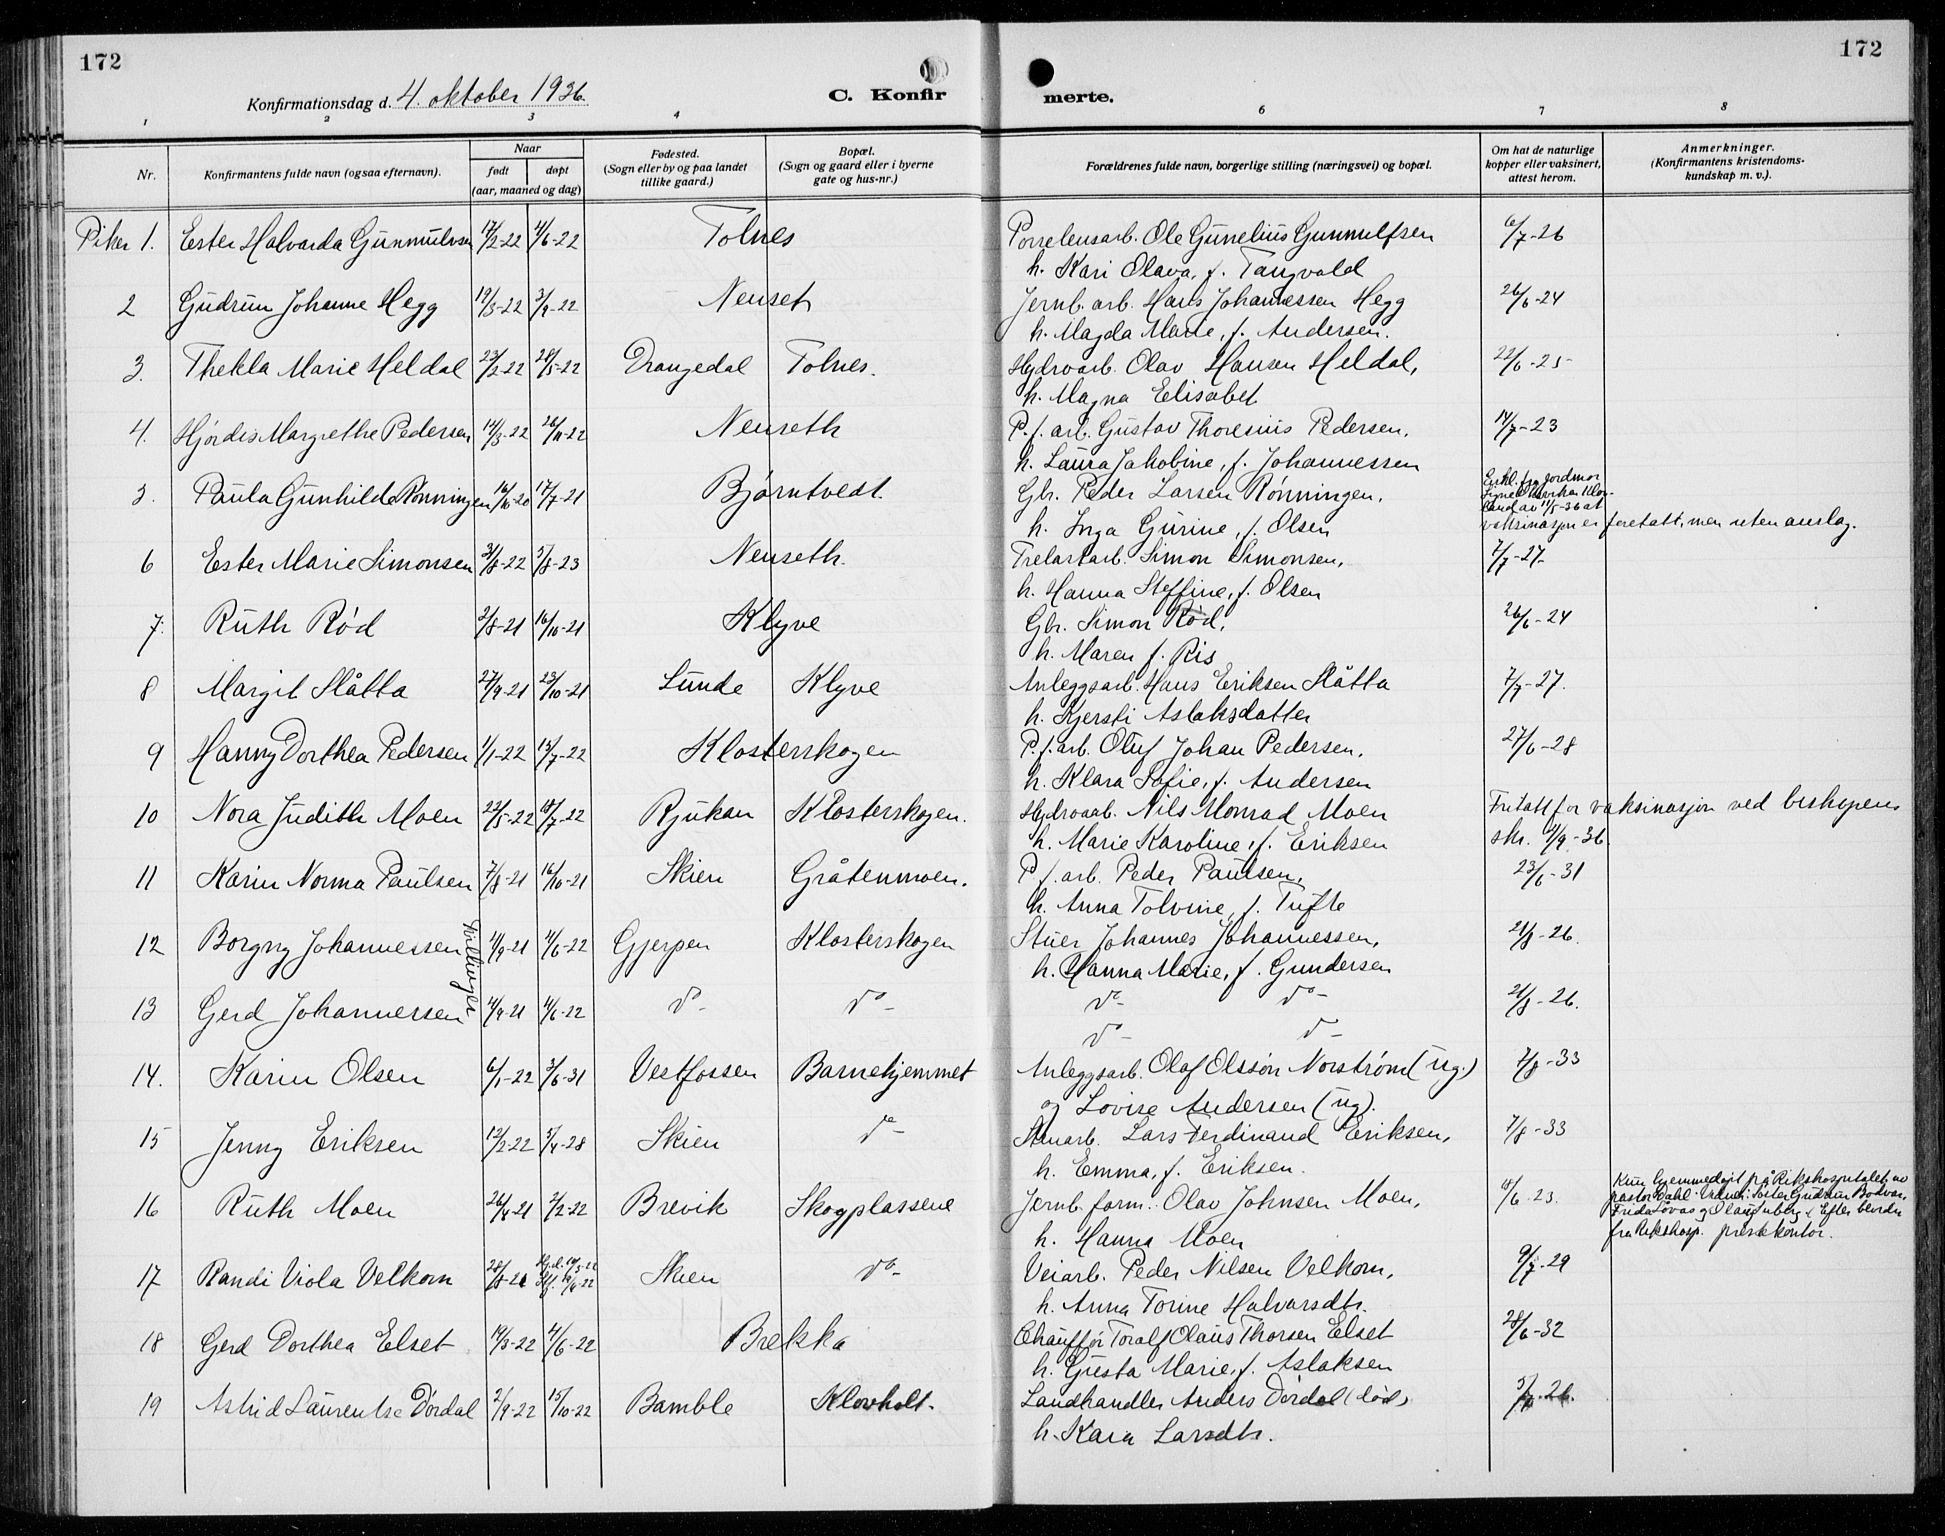 172
172
Konfirmationsdag d. 4. oktober 1936.
C. Konfir
merte.
1 2 3 4 6 7 8
Nr.
Konfirmantens fulde navn (ogsaa efternavn).
Naar
født døpt
(aar, maaned og dag)
Fødested.
(Sogn eller by og paa landet
tillike gaard.)
Bopæl.
(Sogn og gaard eller i byerne
gate og hus-nr.)
Forældrenes fulde navn, borgerlige stilling (næringsvei) og bopæl.
Om hat de naturlige
kopper eller vaksinert,
attest herom.
Anmerkninger.
(Konfirmantens kristendoms-
kundskap m. v.).
Piker 1. Ester Halvarda Gunnulvsen 17/2-22 4/6-22 Tolnes Porselensarb. Ole Gunelius Gunnulfsen 6/7-26
h. Kari Olava, f. Tangvald
2 Gudrun Johanne Hegg 19/3-22 3/9-22 Nenset Jernb. arb. Hans Johannessen Hegg 26/6-24
h. Magda Marie, f. Andersen.
3. Thekla Marie Heldal 23/2-22 28/5-22 Drangedal Tolnes. Hydroarb. Olav Hansen Heldal, 22/6-25
h. Magna Elisabet
4. Hjørdis Margrethe Pedersen 14/3-22 26/11-22 Nenseth P. f. arb. Gustav Thoresius Pedersen, 14/7-23
h. Laura Jakobine, f. Johannessen
5. Paula Gunhilde Rønningen 16/10-20 17/7-21 Bjørntvedt. Gbr. Peder Larsen Rønningen, Erkl. fra jordmor
land av 11/5-36 at
h. Inga Gurine, f. Olsen vaksinasjon er foretatt, men uten anslag.
6 Ester Marie Simonsen 3/8-22 5/8-23 Nenseth. Trelastarb. Simon Simonsen, 7/7-27.
h. Hanna Steffine, f. Olsen
7. Ruth Rød 2/8-21 16/10-21 Klyve Gbr. Simon Rød, 26/6-24
h. Maren f. Ris
8 Margit Slåtta 27/9-21 23/10-21 Lunde Klyve Anleggsarb. Hans Eriksen Slåtta 7/7-27.
h. Kjersti Aslaksdatter
9 Hanny Dorthea Pedersen 1/1-22 13/7-22 Klosterskogen P. f. arb. Oluf Johan Pedersen, 27/6-28
h. Klara Sofie, f. Andersen
10 Nora Judith Moen 22/5-22 18/7-22 Rjukan Klosterskogen. Hydroarb. Nils Monrad Moen Fritatt for vaksinasjon ved biskopens
h. Marie Karoline, f. Eriksen skr. /9-36.
11 Karin Norma Paulsen 7/8-21 16/10-21 Skien Gråtenmoen. P. f. arb. Peder Paulsen, 23/6-31
h. Anna Tolvine, f. Tufte
12 Borgny Johannessen Tvillinger 4/9-21 4/6-22 Gjerpen Klosterskogen Stuer Johannes Johannessen, 21/8-26.
h. Hanna Marie, f. Gundersen
13 Gerd Johannessen 4/9-21 4/6-22 do- do- do- do- 21/8-26.
do- do-
14. Karin Olsen 6/1-22 3/6-31 Vestfossen Barnehjemmet Anleggsarb. Olaf Olsson Norstrøm (ug.) 7/8-33
og Lovise Andersen (ug).
15 Jenny Eriksen 12/2-22 5/4-28 Skien do- Lars Ferdinand Eriksen, 7/8-33
h. Emma, f. Eriksen.
16 Ruth Moen 26/4-21 2/2-22 Brevik Skogplassene Jernb. form. Olav Johnsen Moen, 18/6-23. Kun hjemmedøpt på Rikshospitalet av
pastor Dahl. Vidner: Søster Gudrun
h. Hanna Moen fra Rikshosp. prestekontor.
17 Randi Viola Velkom 28/8-21 Skien do- Veiarb. Peder Nilsen Velkom, 9/7-29
h. Anna Torine Halvarsdtr.
18 Gerd Dorthea Elset 14/3-22 4/6-22 Brekka Chauffør Toralf Olaus Thorsen Elset 28/6-32
h. Gusta Marie, f. Aslaksen
19 Astrid Laurentse Dørdal 2/9-22 15/10-22 Bamble Klovholt. Landhandler Anders Dørdal (død) 5/7-26.
h. Kara Larsdtr.